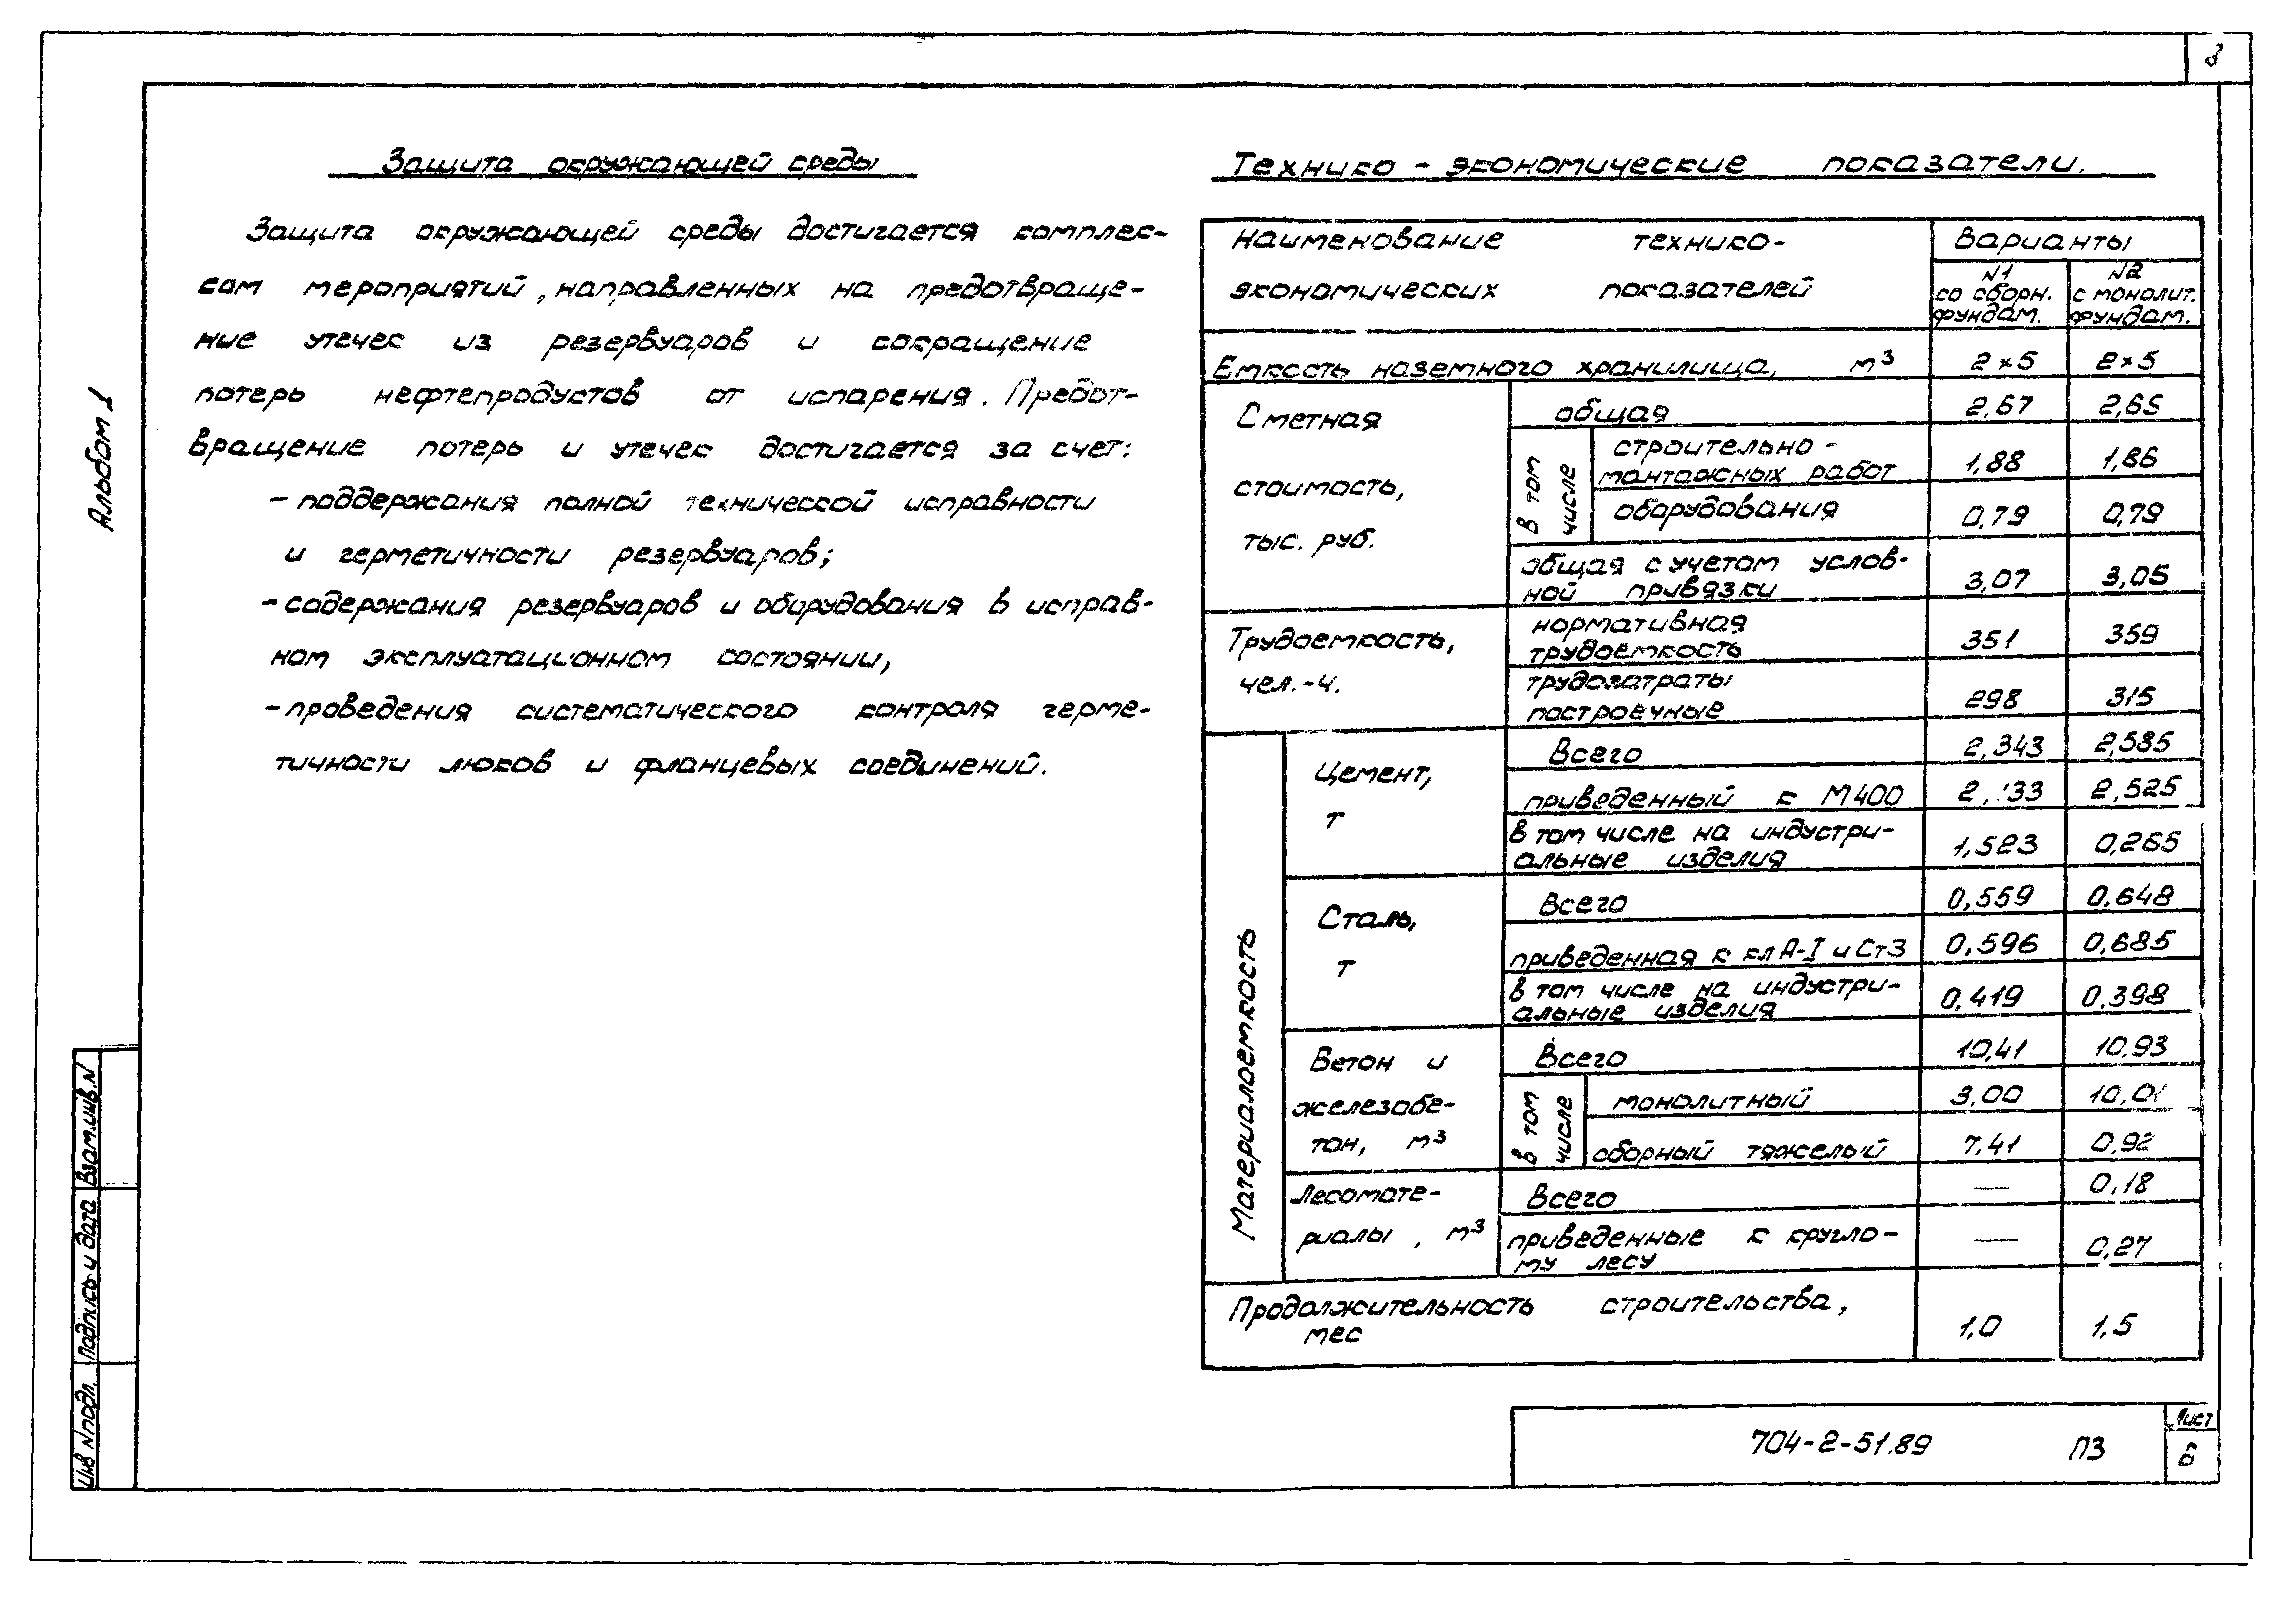 8
Альбом 1
Защита окружающей среды
Защита окружающей среды достигается комплек-
сом мероприятий, направленных на предотвраще-
ние утечек из резервуаров и сокращение
потерь нефтепродуктов от испарения. Предот-
вращение потерь и утечек достигается за счет:
- поддержания полной технической исправности
и герметичности резервуаров;
- содержания резервуаров и оборудования в исправ-
ном эксплуатационном состоянии,
- проведения систематического контроля герме-
тичности люков и фланцевых соединений.
Технико - экономические показатели.
Наименование технико-
экономических показателей
Варианты
N1
со сборн.
фундам.
N2
с монолит.
фундам.
Емкость наземного хранилища, м³ 2×5 2×5
Сметная
стоимость,
тыс. руб.
общая 2,67 2,65
в том
числе
строительно -
монтажных работ 1,88 1,86
оборудования 0,79 0,79
общая с учетом услов-
ной привязки 3,07 3,05
Трудоемкость,
чел.-ч.
нормативная
трудоемкость 351 359
трудозатраты
построечные 298 315
Материалоемкость
Цемент,
т
Всего 2,343 2,585
приведенный к М400 2,525
в том числе на индустри-
альные изделия 1,523 0,265
Сталь,
т
Всего 0,559 0.648
приведенная к кл А-I и Ст3 0,596 0,685
в том числе на индустри-
альные изделия 0,419 0,398
Бетон и
железобе-
тон, м³
Всего 10,41 10,93
в том
числе
монолитный 3,00 10,01
сборный тяжелый 7,41 0,92
Лесомате-
риалы, м³
Всего — 0,18
приведенные к кругло-
му лесу — 0,27
Продолжительность строительства,
мес 1,0 1,5
Взам.инв.N
Подпись и дата
Инв N подл.
704-2-51.89 ПЗ
Лист
6